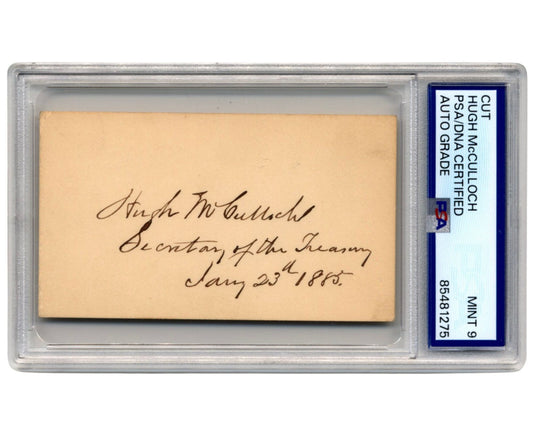 Hugh McCulloch
Secretary of the Treasury
Jany 23d 1885.
CUT
HUGH McCULLOCH
PSA/DNA CERTIFIED
AUTO GRADE
PSA
MINT 9
85481275